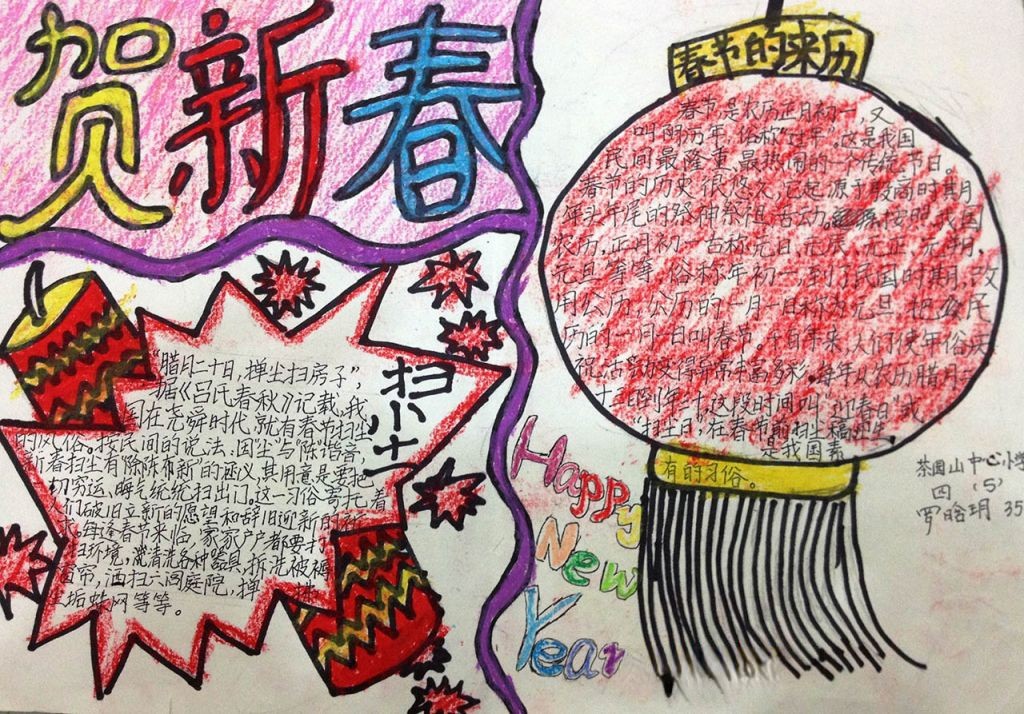 贺新春
春节的来历
春节,是农历正月初一,又
叫阴历年,俗称“过年”。这是我国
民间最隆重、最热闹的一个传统节日。
春节的历史很悠久,它起源于殷商时期
年头年尾的祭神祭祖活动。按照我国
农历,正月初一古称元日、元辰、元正、元朔、
元旦等等,俗称年初一,到了民国时期,改
用公历,公历的一月一日称为元旦,把农
历的一月一日叫春节。千百年来,人们使年俗庆
祝活动变得异常丰富多彩,每年从农历腊月二
十三起到年三十,这段时间叫“迎春日”或
“扫尘日”,在春节前扫尘搞卫生,
是我国素
有的习俗。
扫尘
“腊月二十日,掸尘扫房子”,
据《吕氏春秋》记载,我
国在尧舜时代就有春节扫尘
的风俗。按民间的说法:因“尘”与“陈”谐音,
新春扫尘有“除陈布新”的涵义,其用意是要把
切穷运、晦气统统扫出门。这一习俗寄托着
人们破旧立新的愿望和辞旧迎新的祈
求。每逢春节来临,家家户户都要打
扫环境,清洗各种器具,拆洗被褥
窗帘,洒扫六闾庭院,掸
尘垢蛛网等等。
Happy
New
Year
茶园山中心小学
四(5)
罗晗玥 35